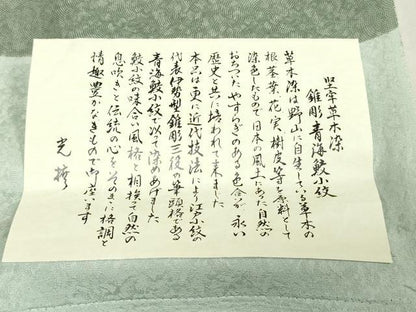 堅牢草木染
錐彫青海鮫小紋
草木染は野山に自生している草木の
根茎葉花実樹皮等を原料として
染色したもので日本の風土にあった自然の
おちついたやすらぎのある色合が永い
歴史と共に培われて来ました
本品は更に近代技法により江戸小紋の
代表伊勢型錐彫三役の筆頭格である
青海鮫小紋を以て染めあげました
鮫小紋の味合い風格と相挨って自然の
息吹きと伝統の心をそのままに格調と
情趣豊かなきもので御座います
光